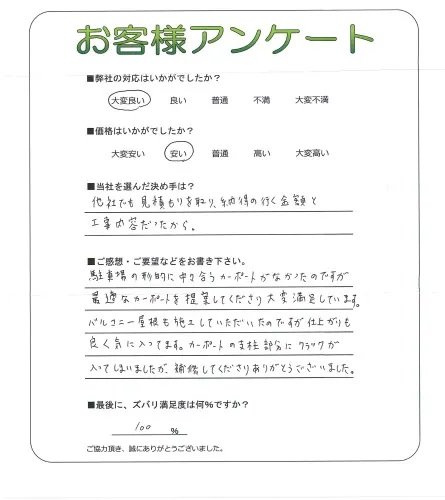 お客様アンケート
■弊社の対応はいかがでしたか？
大変良い 良い 普通 不満 大変不満
■価格はいかがでしたか？
大変安い 安い 普通 高い 大変高い
■当社を選んだ決め手は？
他社でも見積もりを取り、納得の行く金額と
工事内容だったから。
■ご感想・ご要望などをお書き下さい。
駐車場の形的に中々合うカーポートがなかったのですが
最適なカーポートを提案してくださり大変満足しています。
バルコニー屋根も施工していただいたのですが仕上がりも
良く気に入ってます。カーポートの支柱部分にクラックが
入ってしまいましたが、補修してくださりありがとうございました。
■最後に、ズバリ満足度は何%ですか？
100 %
ご協力頂き、誠にありがとうございました。